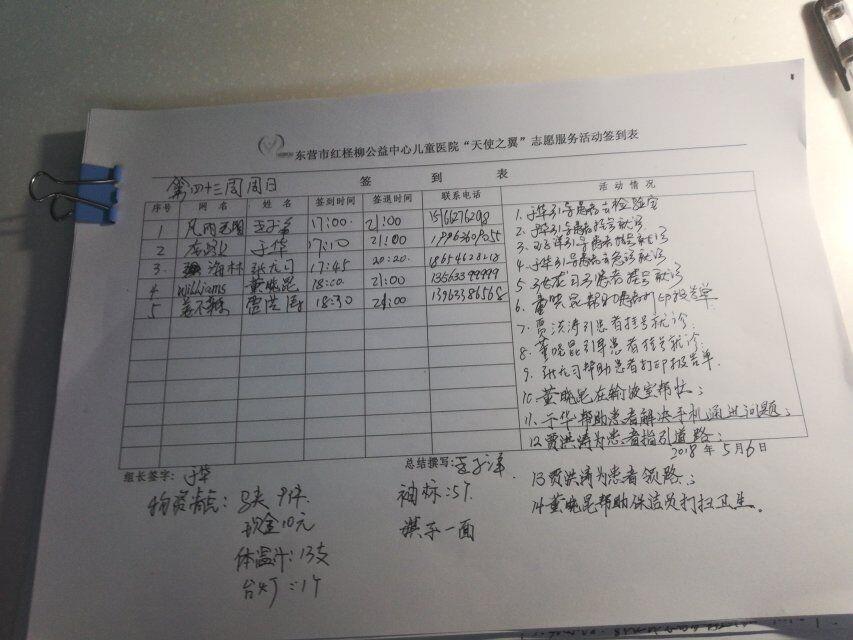 东营市红柽柳公益中心儿童医院“天使之翼”志愿服务活动签到表
第四十三周周日 签到表 活动情况
序号 网名 姓名 签到时间 签退时间 联系电话
1 王子洋 17:00 21:00
2 于华 17:10 21:00
3 海林 张龙习 17:45 20:20
4 williams 董晓昆 18:00 21:00 13563399999
5 贾洪涛 18:30 21:00 13963386568
1. 于华引导患者去检验室
2. 于华引导患者挂号就诊
3. 王子洋引导患者挂号就诊
4. 于华引导患者急诊就诊
5. 张龙习引患者挂号就诊
6. 董晓昆帮助患者打印报告单
7. 贾洪涛引患者挂号就诊
8. 董晓昆引导患者挂号就诊
9. 张龙习帮助患者打印报告单.
10. 董晓昆在输液室帮忙;
11. 于华帮助患者解决手机通进问题;
12 贾洪涛为患者指引道路;
2018年5月6日
组长签字: 于华 总结撰写: 王子洋
13 贾洪涛为患者领路;
14 董晓昆帮助保洁员打扫卫生。
物资清点: 马夹 9件. 袖标:5个.
现金10元 旗子一面
体温计:13支
台灯:1个